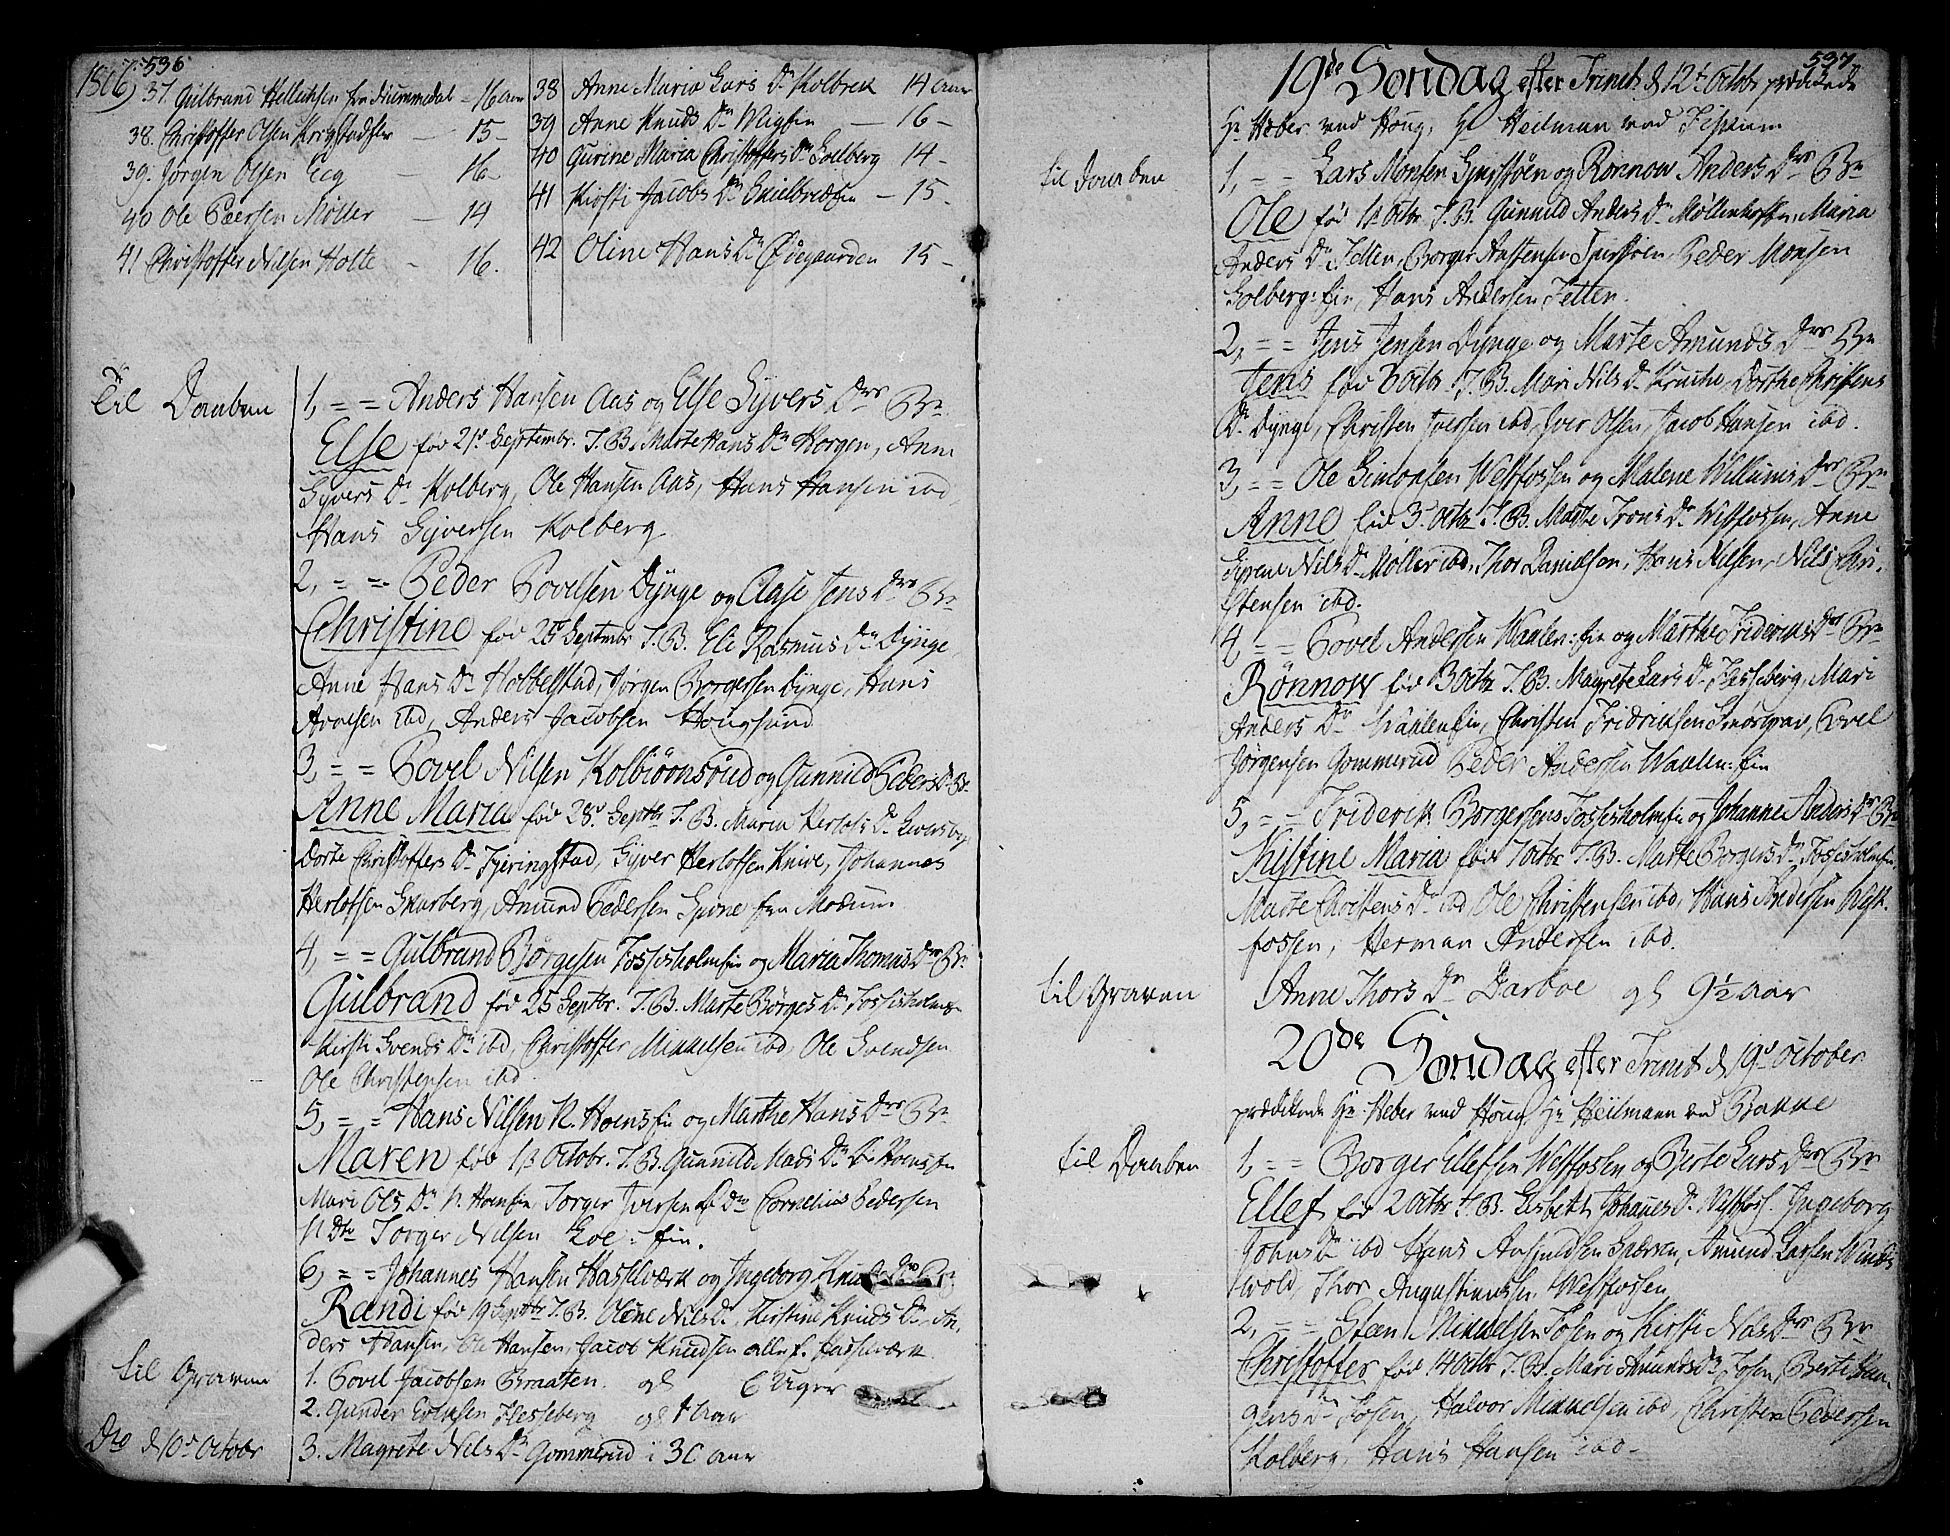 1806, 536
37. Gulbrand Hellichsen fra Nummedal - 16 aar
38. Christoffer Olsen Krogstadfier — 15 -
39. Jørgen Olsen Eeg — 16 -
40 Ole Peersen Møller — 14
41 Christoffer Nilsen Holte - 16.
38 Anne Maria Lars Dr Kolbrek 14 aar
39 Anne Knuds Dr — 16 -
40 Gurine Maria Christoffers Dr Solberg 14 -
41 Kirsti Jacobs Dr - 15 -
42 Oline Hans Dr Ødegaarden 15 -
Til Daaben
1, = = Anders Hansen Aas og Else Syvers Drs Bn
Else fød 21d Septembr. T. B. Marte Hans Dr Horgen, Anne
Syvers Dr Kolberg, Ole Hansen Aas, Hans Hansen ibd,
Hans Syversen Kolberg
2, = = Peder Povelsen Dynge og Aase Jens Drs Bn
Christine fød 25d Septmbr T. B. Eli Rasmus Dr Dynge,
Anne Hans Dr Hobbelstad, Jørgen Borgersen Dynge, Hans
ibd, Anders Jacobsen Hougsund
3, = = Povel Nilsen Kolbiønsrud og Gunnild Peders Dr Bn
Anne Maria fød 28d Septbr T. B. Maria Herlofs Dr
Dorte Christoffers Dr Tieringstad, Syver Herlofsen Knive, Johannes
Herlofsen Skarberg, Amund Pedersen fra Modum
4, = = Gulbrand Borgesen Fossesholmfin og Maria Thomas Drs Bn
Gulbrand fød 25 Septbr. T. B. Marte Børges Dr Fossesholm
Kirsti Svends Dr ibd, Christoffer Mikkelsen ibd, Ole Svendsen
Ole Christensen ibd
5, = = Hans Nilsen N. Hoensfin og Marthe Hans Drs Bn
Maren fød 1/3 Octobr. T. B. Gunnild Mads Dr Hoensfin
Mari Ols Dr N. Hoensfin Torger Iversen Dto Cornelius Pedersen
N Dto Torger Nilsen Loe: fin.
6, = = Johannes Hansen Hasselværk og Ingeborg Knuds Drs Bn
Randi fød 19 Septbr T. B. Oline Nils Dr, Kirstine Knuds Dr, An-
ders Hansen, Ole Hansen, Jacob Knudsen alle f. Hasselværk.
Til Graven
1. Povel Jacobsen Braaten. gl 6 Uger
2. Gunder Flesseberg gl aar
Dto d 10d Octobr
3. Magrete Nils Dr Gommerud i 30 aar
537.
19de Søndag efter Trinit d 12t Octobr prædikede
Hr Heber ved Houg, Hr Heilman ved
til Daaben
1, = = Lars Monsen og Rønnow Anders Drs Bn
Ole fød 10 Octbr T. B. Gunnild Anders Dr Møllenhoffin, Maria
Anders Dr Jellen, Borger Peder Monsen
Solberg: fin, Hans Andersen Jetten.
2, = = Jens Jensen Dynge og Marte Amunds Drs Bn
Jens fød 6 Octbr T. B. Mari Nils Dr Dorthe Christens
Dr Dynge, Christen Iversen ibd, Iver Olsen, Jacob Hansen ibd.
3, = = Ole Simonsen Westfossen og Malene Willums Drs Bn
Anne fød 3d Octbr T. B. Magte Trons Dr Westfossen, Anne
Sirene Nils Dr Møller ibd, Thor Danielsen, Hans Nilsen, Nils Chri-
stensen ibd.
4, = = Povel Andersen Waalen: fin og Marthe Friderichs Drs Bn
Rønnow fød 3 Octbr T. B. Magrete Lars Dr Flesseberg, Mari
Anders Dr Waalenfin, Christen Fridrichsen Smørgrav, Povel
Jørgensen Gommerud Peder Andersen Waalen: fin
5, = = Friderik Borgersens Fossesholmfin og Johanne Anders Drs Bn
Kistine Maria fød 1 Octbr T. B. Marte Borgers Dr Fossesholmfin
Marte Christens Dr ibd Ole Christensen ibd, Hans Andersen West-
fossen, Herman Andersen ibd.
til Graven
Anne Thors Dr Darboe gl 9 1/2 aar
20de Søndag efter Trinit d 19d October
prædikede Hr. Heber ved Houg Hr Heilmann ved Bakke
til Daaben
1, = = Borger Ellefsen Westfosen og Berte Lars Drs Bn
Ellef fød 2 Octbr T. B. Lisbeth Johannes Dr Westfoss. Ingeborg
Johns Dr ibd Hans Amund Larsen
wold, Thor Augustinussen Westfossen
2, = = Steen Mikkelsen Fosen og Kirsti Nils Drs Bn
Christoffer fød 14 Octbr T. B. Mari Amunds Dr Fosen, Berte Haa-
gens Dr Fosen, Halvor Mikkelsen ibd, Christen Pedersen
Kolberg, Hans Hansen ibd -